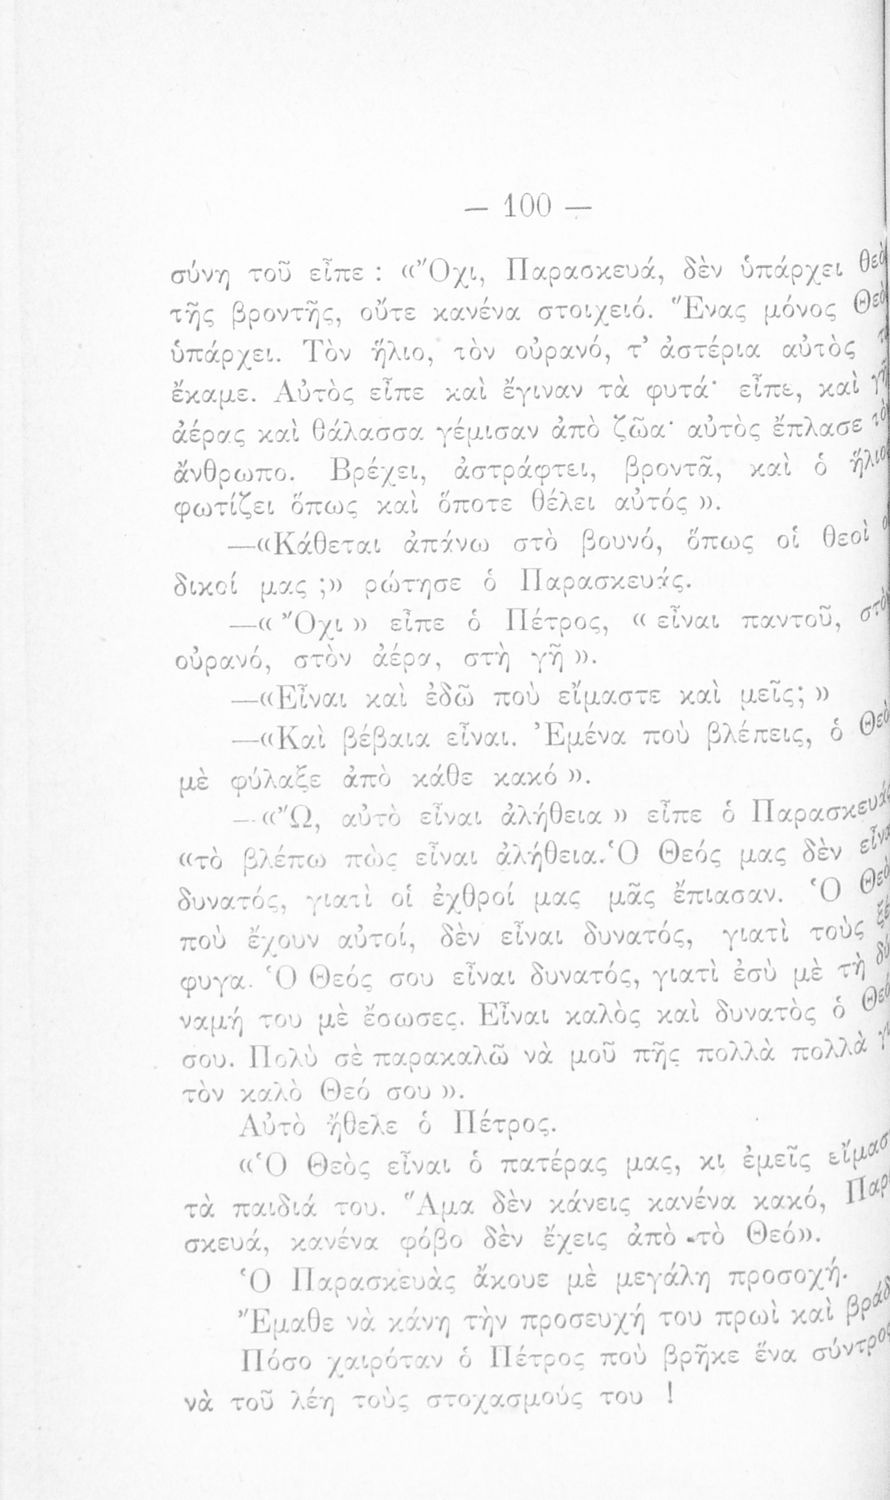 — 100 —
σύνη τοῦ εἶπε : «Ὄχι, Παρασκευά, δὲν ὑπάρχει
τῆς βροντῆς, οὔτε κανένα στοιχειό. Ἕνας μόνος
ὑπάρχει. Τὸν ἥλιο, τὸν οὐρανό, τ’ ἀστέρια αὐτὸς
ἔκαμε. Αὐτὸς εἶπε καὶ ἔγιναν τὰ φυτά· εἶπε, καὶ
ἀέρας καὶ θάλασσα γέμισαν ἀπὸ ζῶα· αὐτὸς ἔπλασε
ἄνθρωπο. Βρέχει, ἀστράφτει, βροντᾶ, καὶ ὁ
φωτίζει ὅπως καὶ ὅποτε θέλει αὐτός ».
—«Κάθεται ἀπάνω στὸ βουνό, ὅπως οἱ θεοὶ
δικοί μας ;» ρώτησε ὁ Παρασκευάς.
—« Ὄχι » εἶπε ὁ Πέτρος, « εἶναι παντοῦ,
οὐρανό, στὸν ἀέρα, στὴ γῆ ».
—«Εἶναι καὶ ἐδῶ ποὺ εἴμαστε καὶ μεῖς; »
—«Καὶ βέβαια εἶναι. Ἐμένα ποὺ βλέπεις, ὁ
μὲ φύλαξε ἀπὸ κάθε κακό ».
—«Ὤ, αὐτὸ εἶναι ἀλήθεια » εἶπε ὁ
«τὸ βλέπω πὼς εἶναι ἀλήθεια. Ὁ Θεός μας δὲν
δυνατός, γιατὶ οἱ ἐχθροί μας μᾶς ἔπιασαν. Ὁ
ποὺ ἔχουν αὐτοί, δὲν εἶναι δυνατός, γιατὶ τοὺς
φυγα. Ὁ Θεός σου εἶναι δυνατός, γιατὶ ἐσὺ μὲ τὴ
ναμή του μὲ ἔσωσες. Εἶναι καλὸς καὶ δυνατὸς ὁ
σου. Πολὺ σὲ παρακαλῶ νὰ μοῦ πῆς πολλὰ πολλὰ
τὸν καλὸ Θεό σου ».
Αὐτὸ ἤθελε ὁ Πέτρος.
«Ὁ Θεὸς εἶναι ὁ πατέρας μας, κι ἐμεῖς
τὰ παιδιά του. Ἅμα δὲν κάνεις κανένα κακό,
σκευά, κανένα φόβο δὲν ἔχεις ἀπὸ τὸ Θεό».
Ὁ Παρασκευὰς ἄκουε μὲ μεγάλη προσοχή.
Ἔμαθε νὰ κάνη τὴν προσευχή του πρωὶ καὶ
Πόσο χαιρόταν ὁ Πέτρος ποὺ βρῆκε ἕνα
νὰ τοῦ λέη τοὺς στοχασμούς του !